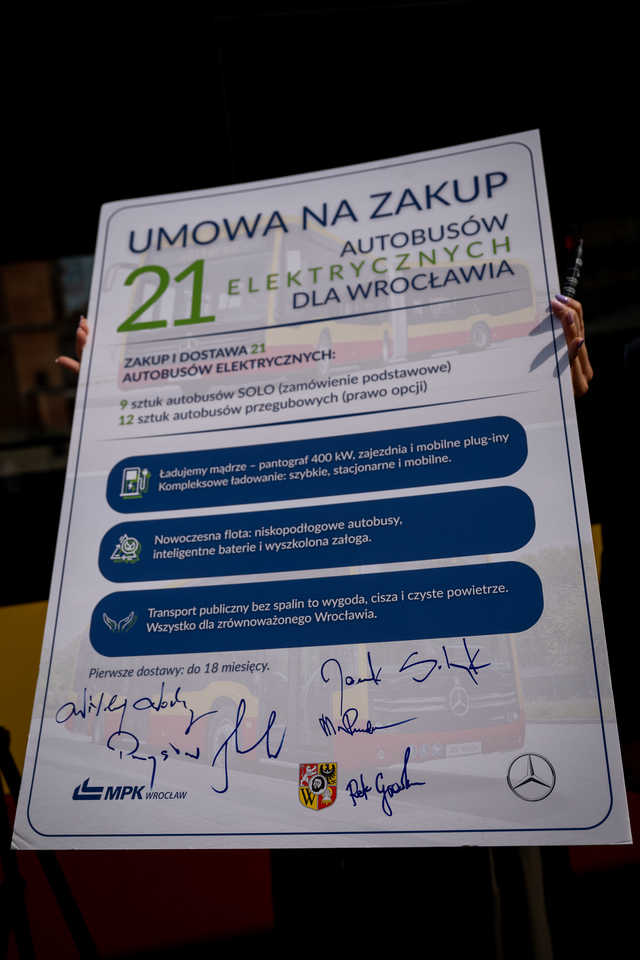 UMOWA NA ZAKUP
21
AUTOBUSÓW
ELEKTRYCZNYCH
DLA WROCŁAWIA
ZAKUP I DOSTAWA 21
AUTOBUSÓW ELEKTRYCZNYCH:
9 sztuk autobusów SOLO (zamówienie podstawowe)
12 sztuk autobusów przegubowych (prawo opcji)
Ładujemy mądrze – pantograf 400 kW, zajezdnia i mobilne plug-iny
Kompleksowe ładowanie: szybkie, stacjonarne i mobilne.
Nowoczesna flota: niskopodłogowe autobusy,
inteligentne baterie i wyszkolona załoga.
Transport publiczny bez spalin to wygoda, cisza i czyste powietrze.
Wszystko dla zrównoważonego Wrocławia.
Pierwsze dostawy: do 18 miesięcy.
MPK WROCŁAW
W